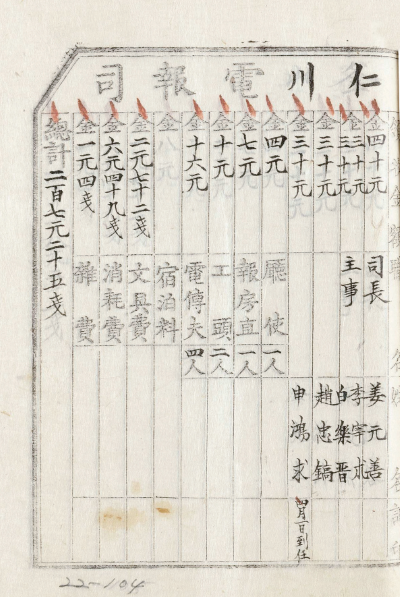 仁川電報司
金四十元 司長 姜元善
金三十元 主事 李宰求
金三十元 白樂晋
金三十元 趙忠鎬
金三十元 申鴻求 四月一日到任
金四元 廳使 一人
金七元 報房直 一人
金十元 工頭 二人
金十六元 電傳夫 四人
金八元 宿泊料
金二元七十二戔 文具費
金六元四十九戔 消耗費
金一元四戔 雜費
總計 二百七元二十五戔
22-104